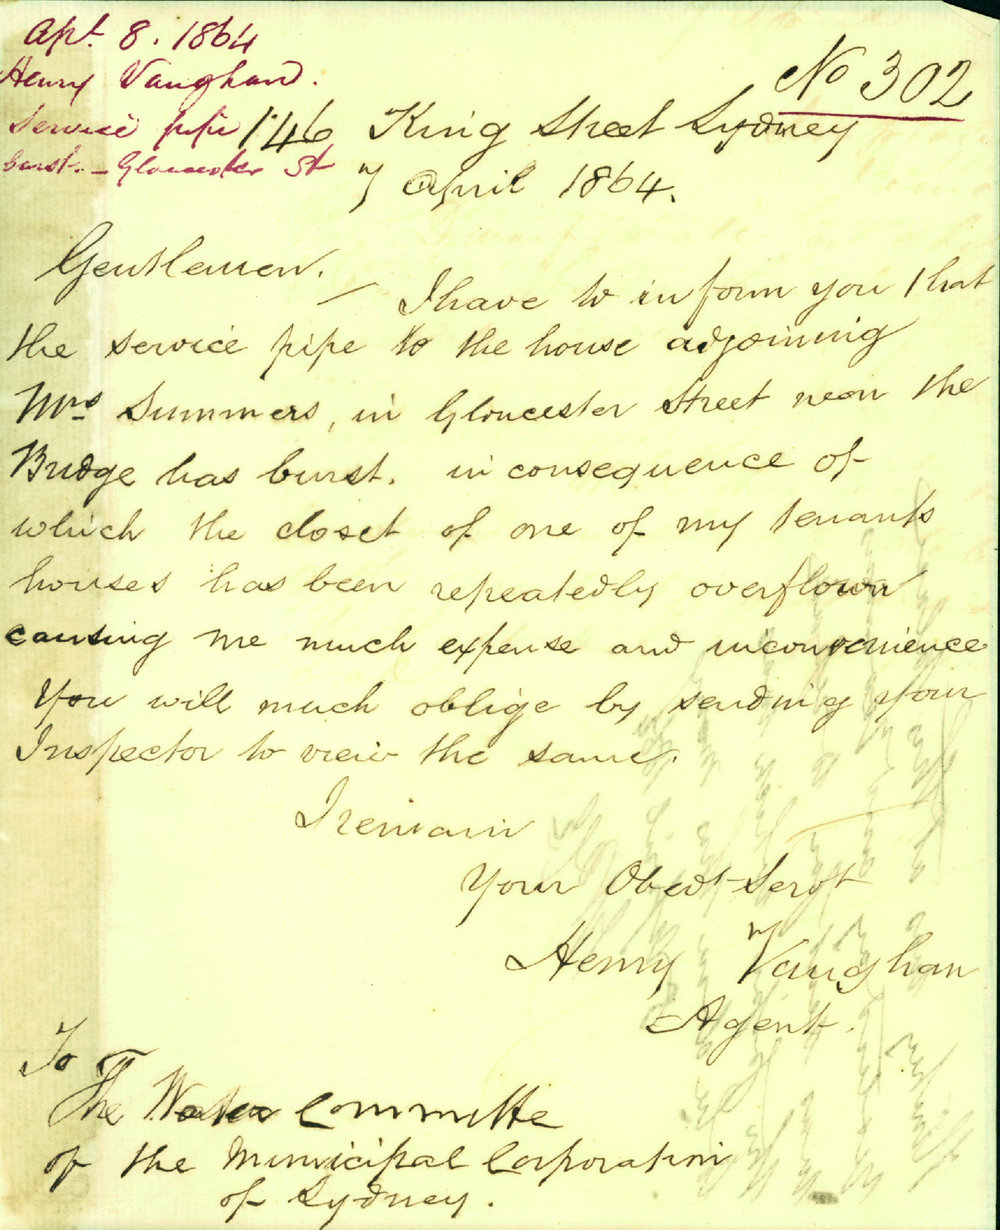 Apl. 8. 1864
Henry Vaughan.
Service pipe
burst. – Gloucester St
No 302
146 King Street Sydney
7 April 1864.
Gentlemen.
— I have to inform you that
the service pipe to the house adjoining
Mrs Summers, in Gloucester Street near the
Bridge has burst. in consequence of
which the closet of one of my tenants
houses has been repeatedly overflown
causing me much expense and inconvenience
You will much oblige by sending your
Inspector to view the same.
I remain
Your Obedt Servt
Henry Vaughan
Agent.
To
The Water Committe
of the Municipal Corporation
of Sydney.